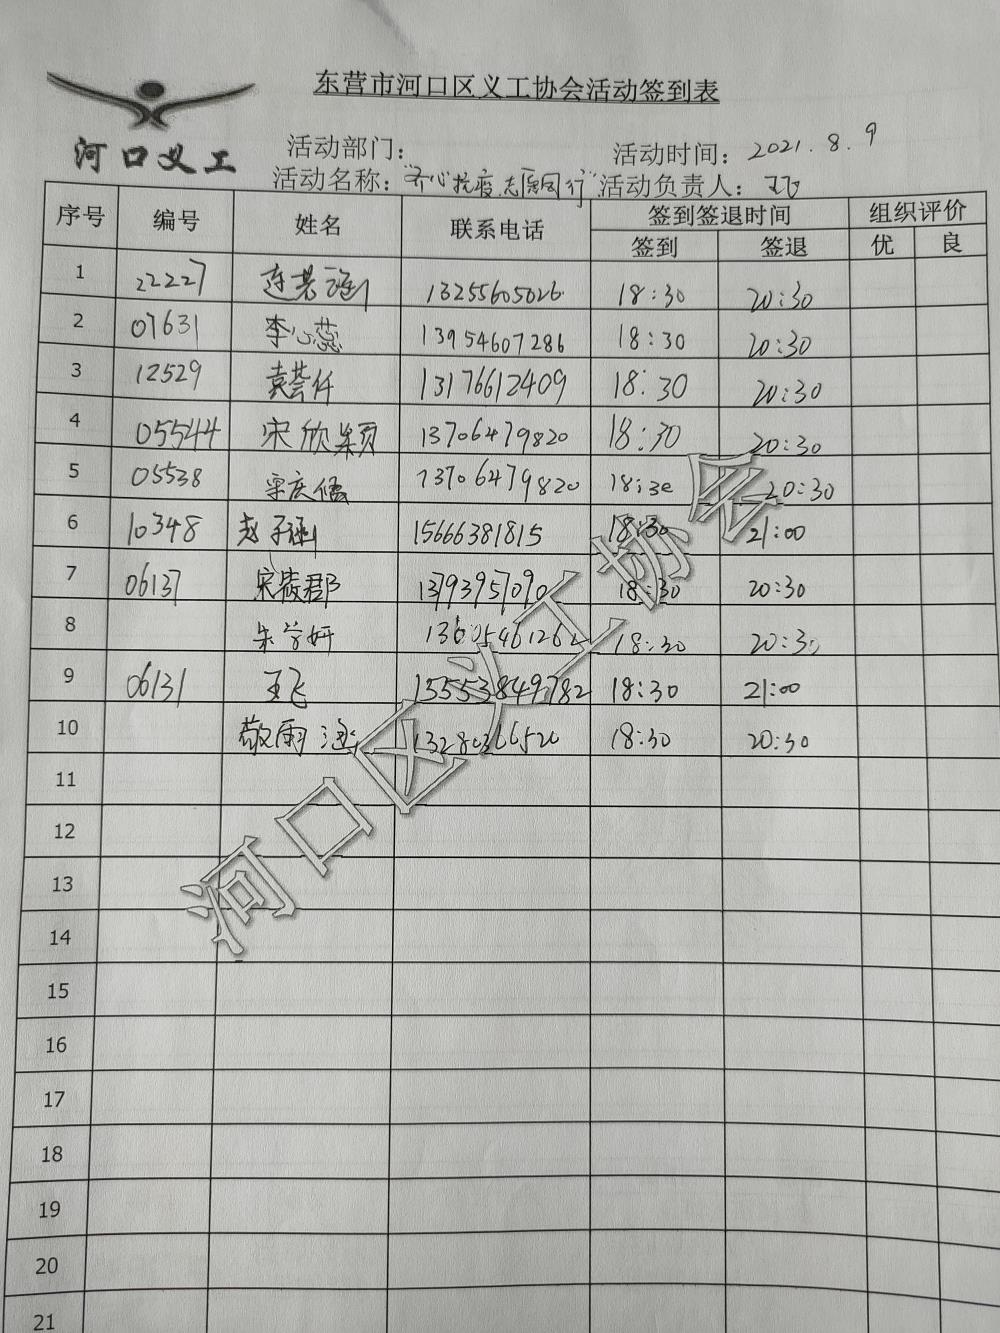 东营市河口区义工协会活动签到表
河口义工
活动部门：
活动时间：2021.8.9
活动名称："齐心抗疫 志愿同行"
活动负责人：王飞
序号 编号 姓名 联系电话 签到签退时间 组织评价
签到 签退 优 良
1 22227 13255605026 18:30 20:30
2 07631 李心蕊 13954607286 18:30 20:30
3 12529 袁荟仟 13176612409 18:30 20:30
4 05544 宋欣颖 13706479820 18:30 20:30
5 05538 13706479820 18:30 20:30
6 10348 赵子涵 15666381815 18:30 21:00
7 06137 18:30 20:30
8 18:30 20:30
9 06131 王飞 15553849782 18:30 21:00
10 敬雨涵 18:30 20:30
11
12
13
14
15
16
17
18
19
20
21
河口区义工协会